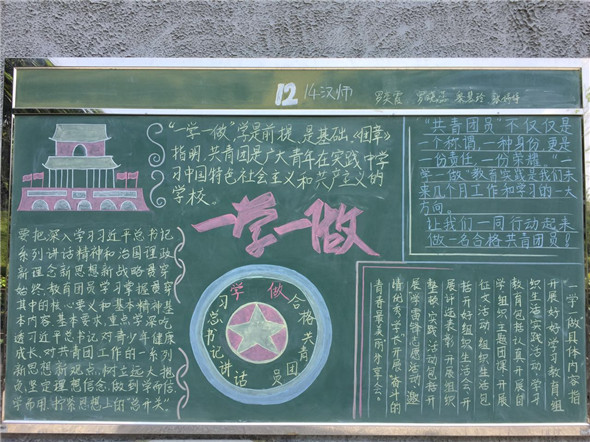 12 14汉师
"一学一做",学是前提,是基础,《团章》
指明,共青团是广大青年在实践中学
习中国特色社会主义和共产主义的
学校。
"共青团员"不仅仅是
一个称谓,一种身份,更是
一份责任,一份荣耀。"一
学一做"教育实践是我们未
来几个月工作和学习的一大
方向。
让我们一同行动起来
做一名合格共青团员!
一学一做
要把深入学习习近平总书记
系列讲话精神和治国理政
新理念新思想新战略贯穿
始终,教育团员学习掌握贯穿
其中的核心要义和基本精神基
本内容、基本要求,重点学深吃
透习近平总书记对青少年健康
成长、对共青团工作的一系列
新思想新观点,树立远大抱
负,坚定理想信念,做到学而信、
学而用,拧紧思想上的"总开关"。
学习总书记讲话
做合格共青团员
一学一做具体内容指
开展好好学习教育组
织生活实践活动,学习
教育包括认真开展团
学组织主题团课开展
征文活动,组织生活包
括开好组织生活会,开
展评选表彰,开展组织
整顿,实践活动包括开
展学雷锋志愿活动,邀
请优秀学长开展奋斗的
青春最美丽分享会。